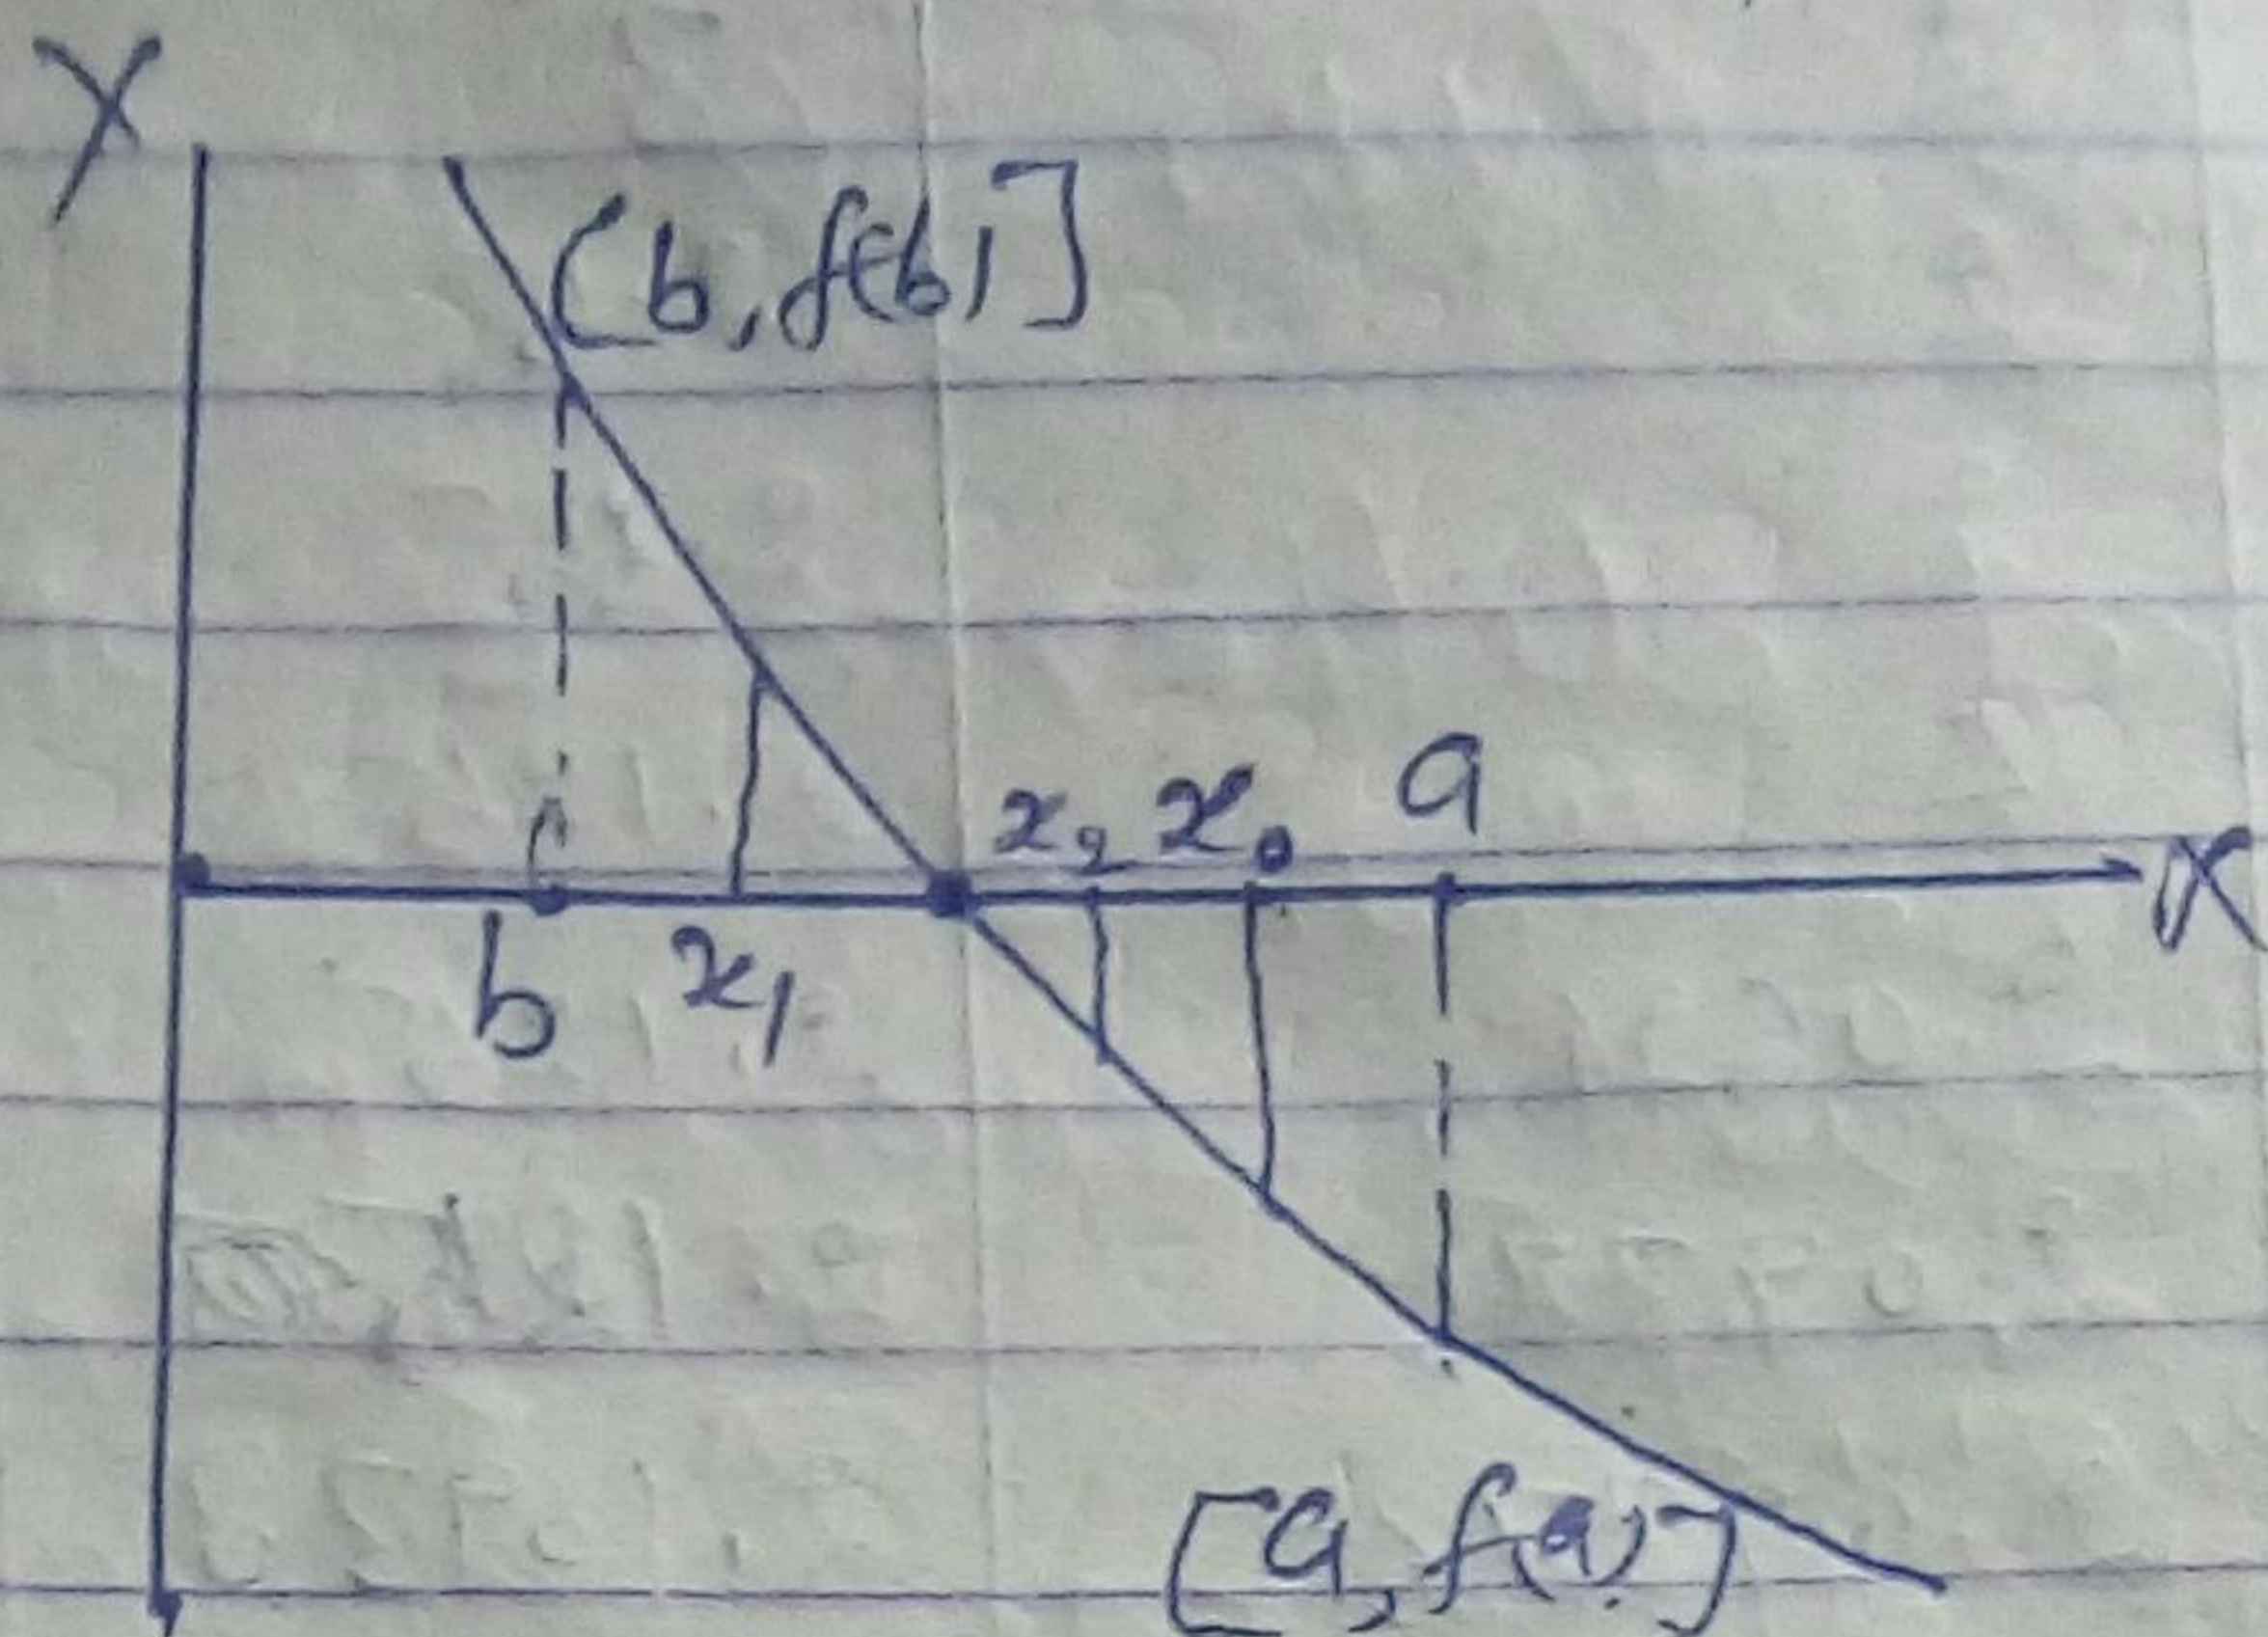 Y
[b, f(b)]
x₂ x₀ a
X
b x₁
[a, f(a)]